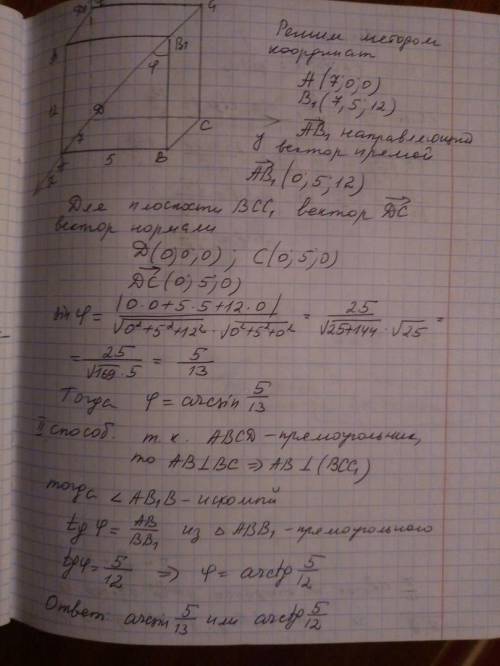 Решим методом
координат
A(7;0;0)
B₁(7;5;12)
AB₁ направляющий
вектор прямой
AB₁(0;5;12)
C₁
B₁
φ
12
D
7
C
y
5
B
Для плоскости BCC₁ вектор DC
вектор нормали
D(0;0;0); C(0;5;0)
DC(0;5;0)
sin φ = |0·0+5·5+12·0| / √0²+5²+12² · √0²+5²+0² = 25 / √25+144 · √25 =
= 25 / √169 · 5 = 5/13
Тогда φ = arcsin 5/13
II способ. т.к. ABCD - прямоугольник,
то AB⊥BC ⇒ AB⊥(BCC₁)
тогда ∠AB₁B - искомый
tg φ = AB/BB₁ из △ABB₁ - прямоугольного
tgφ = 5/12 ⇒ φ = arctg 5/12
Ответ arcsin 5/13 или arctg 5/12